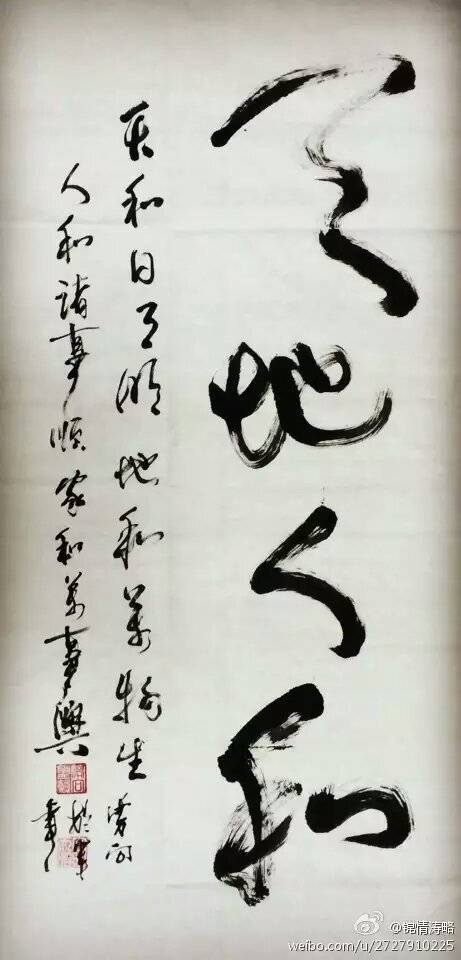 天地人和
天和日月明地和萬物生
人和諸事順家和萬事興
@锟情涛略
weibo.com/u/2727910225